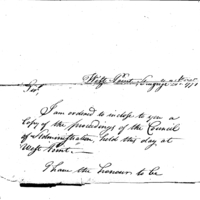 West Point
Sir,
I am ordered to inclose to you a
Copy of the proceedings of the Council
of Administration, held this day, at
West Point.
I have the honour to be